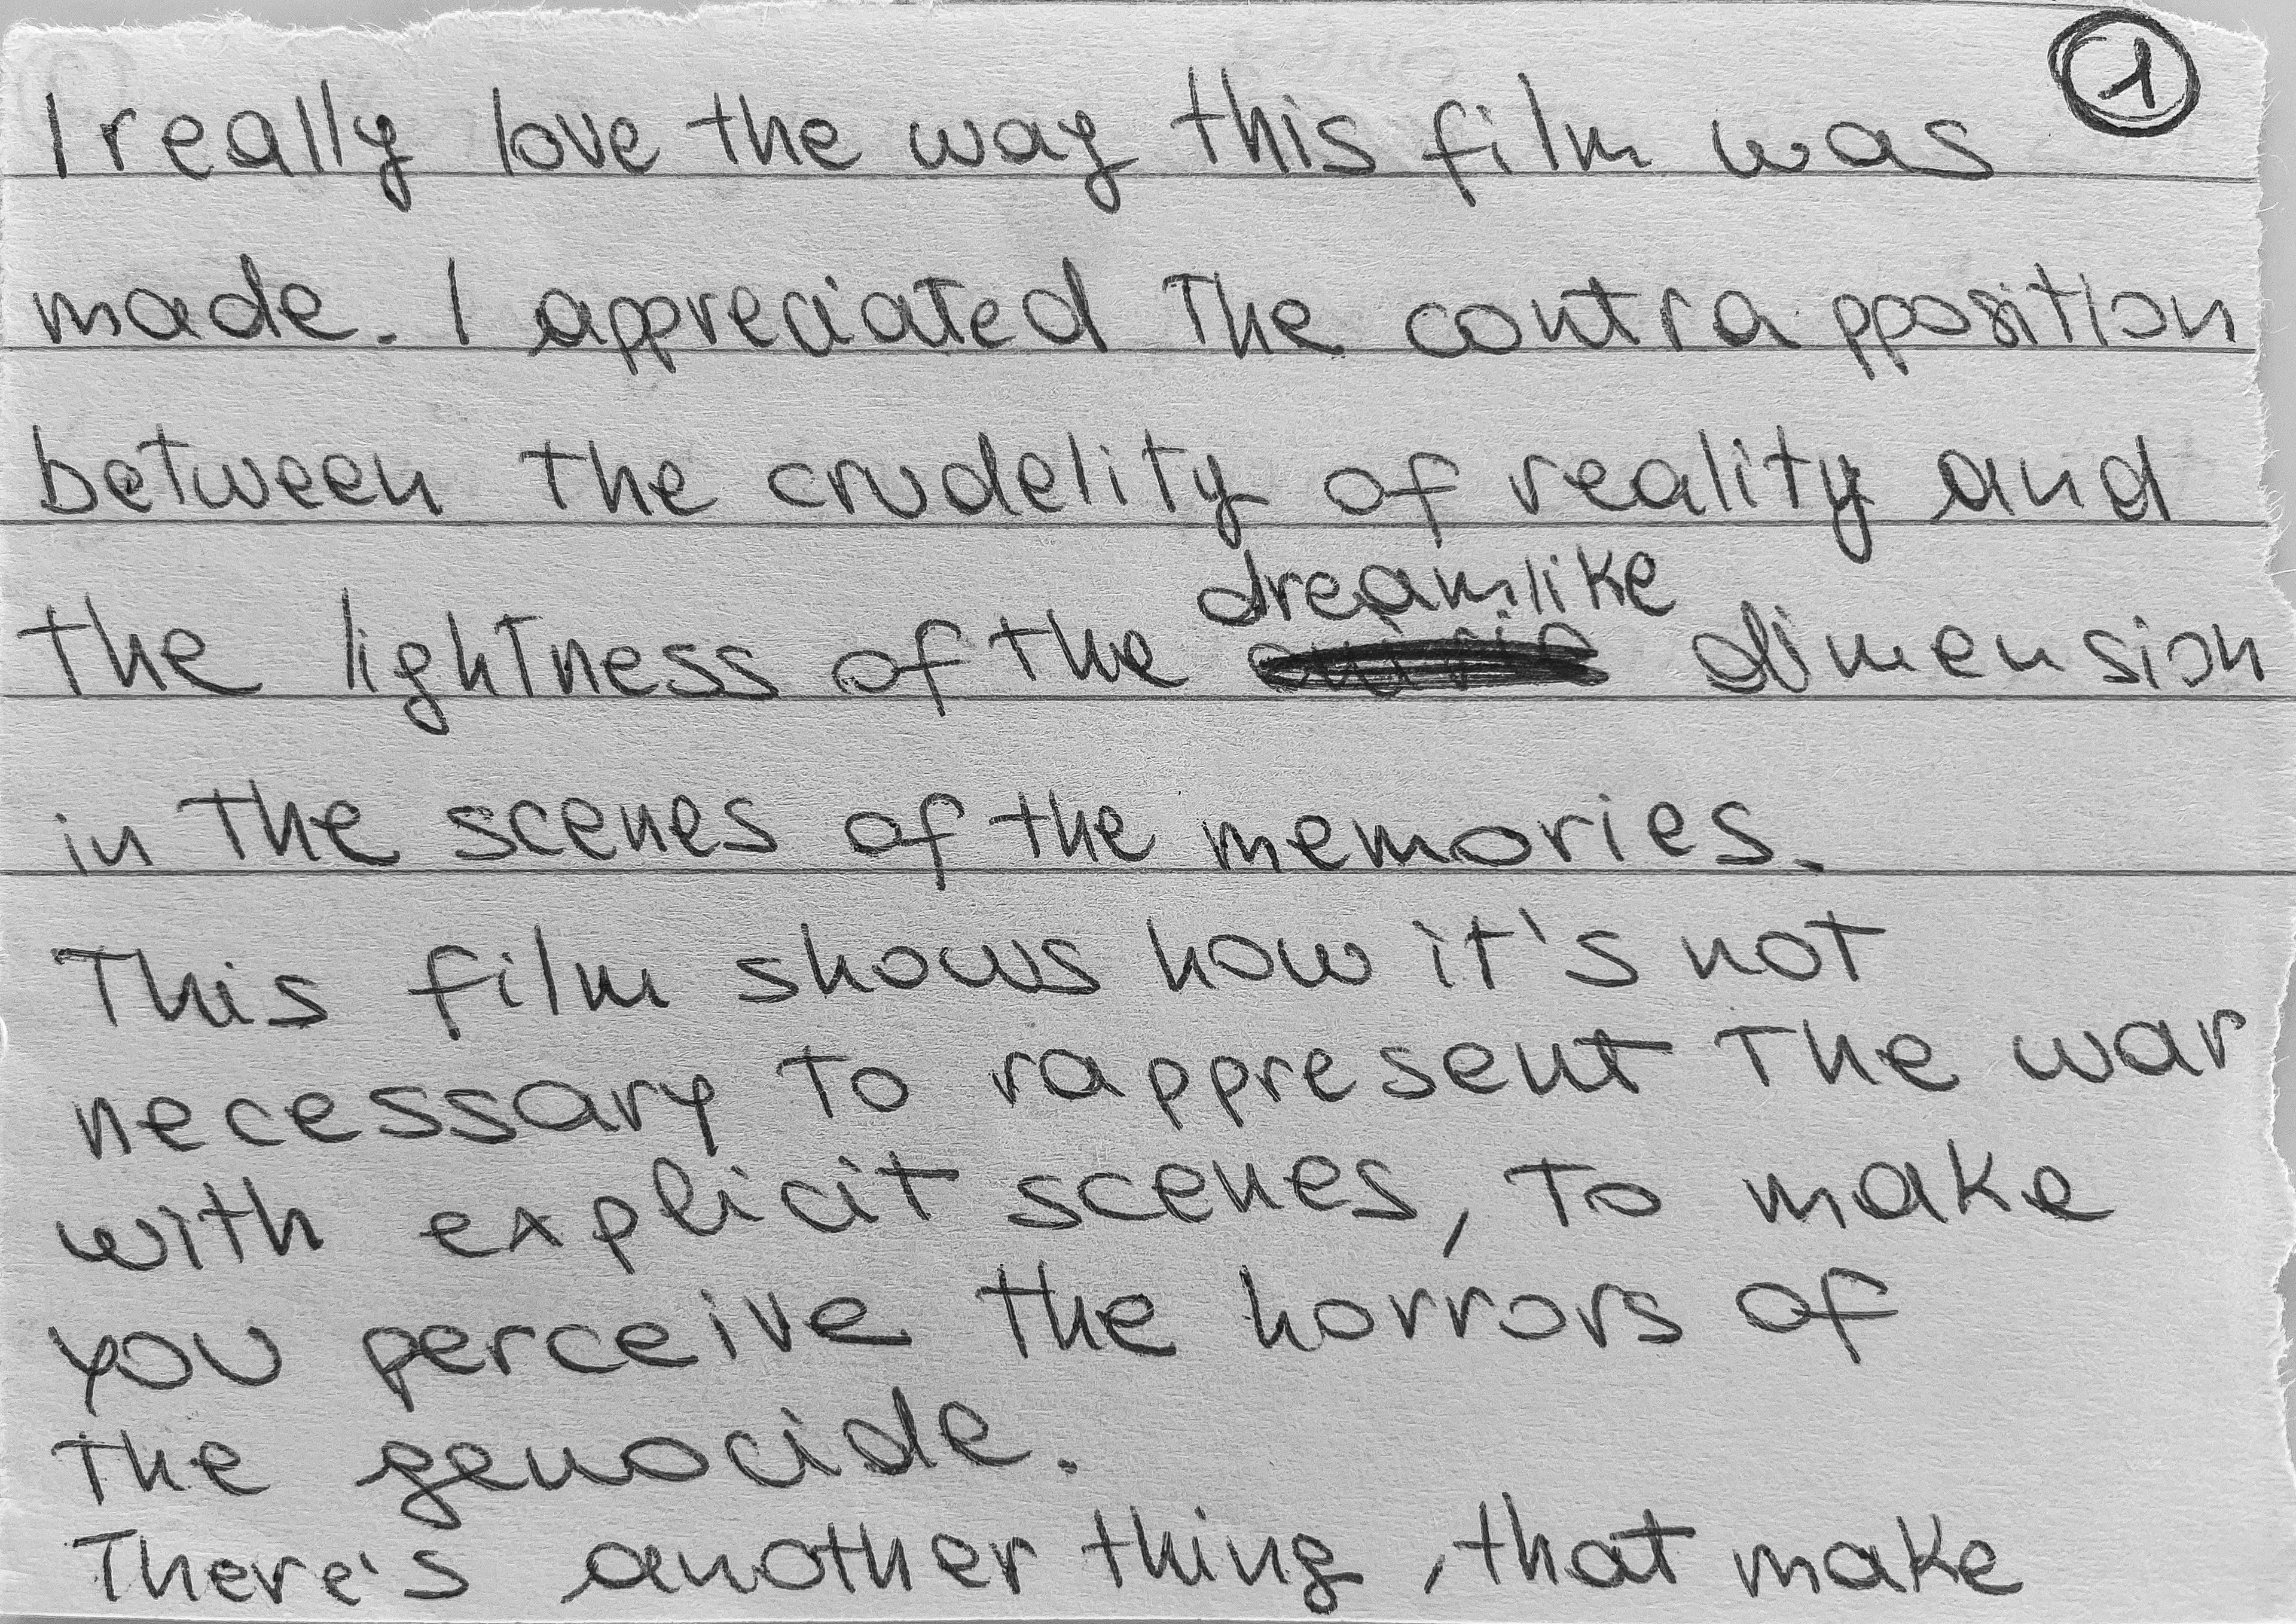 1
I really love the way this film was
made. I appreciated the contrapposition
between the crudelity of reality and
dreamlike
the lightness of the dimension
in the scenes of the memories.
This film shows how it's not
necessary to rappresent the war
with explicit scenes, to make
you perceive the horrors of
the genocide.
There's another thing, that make